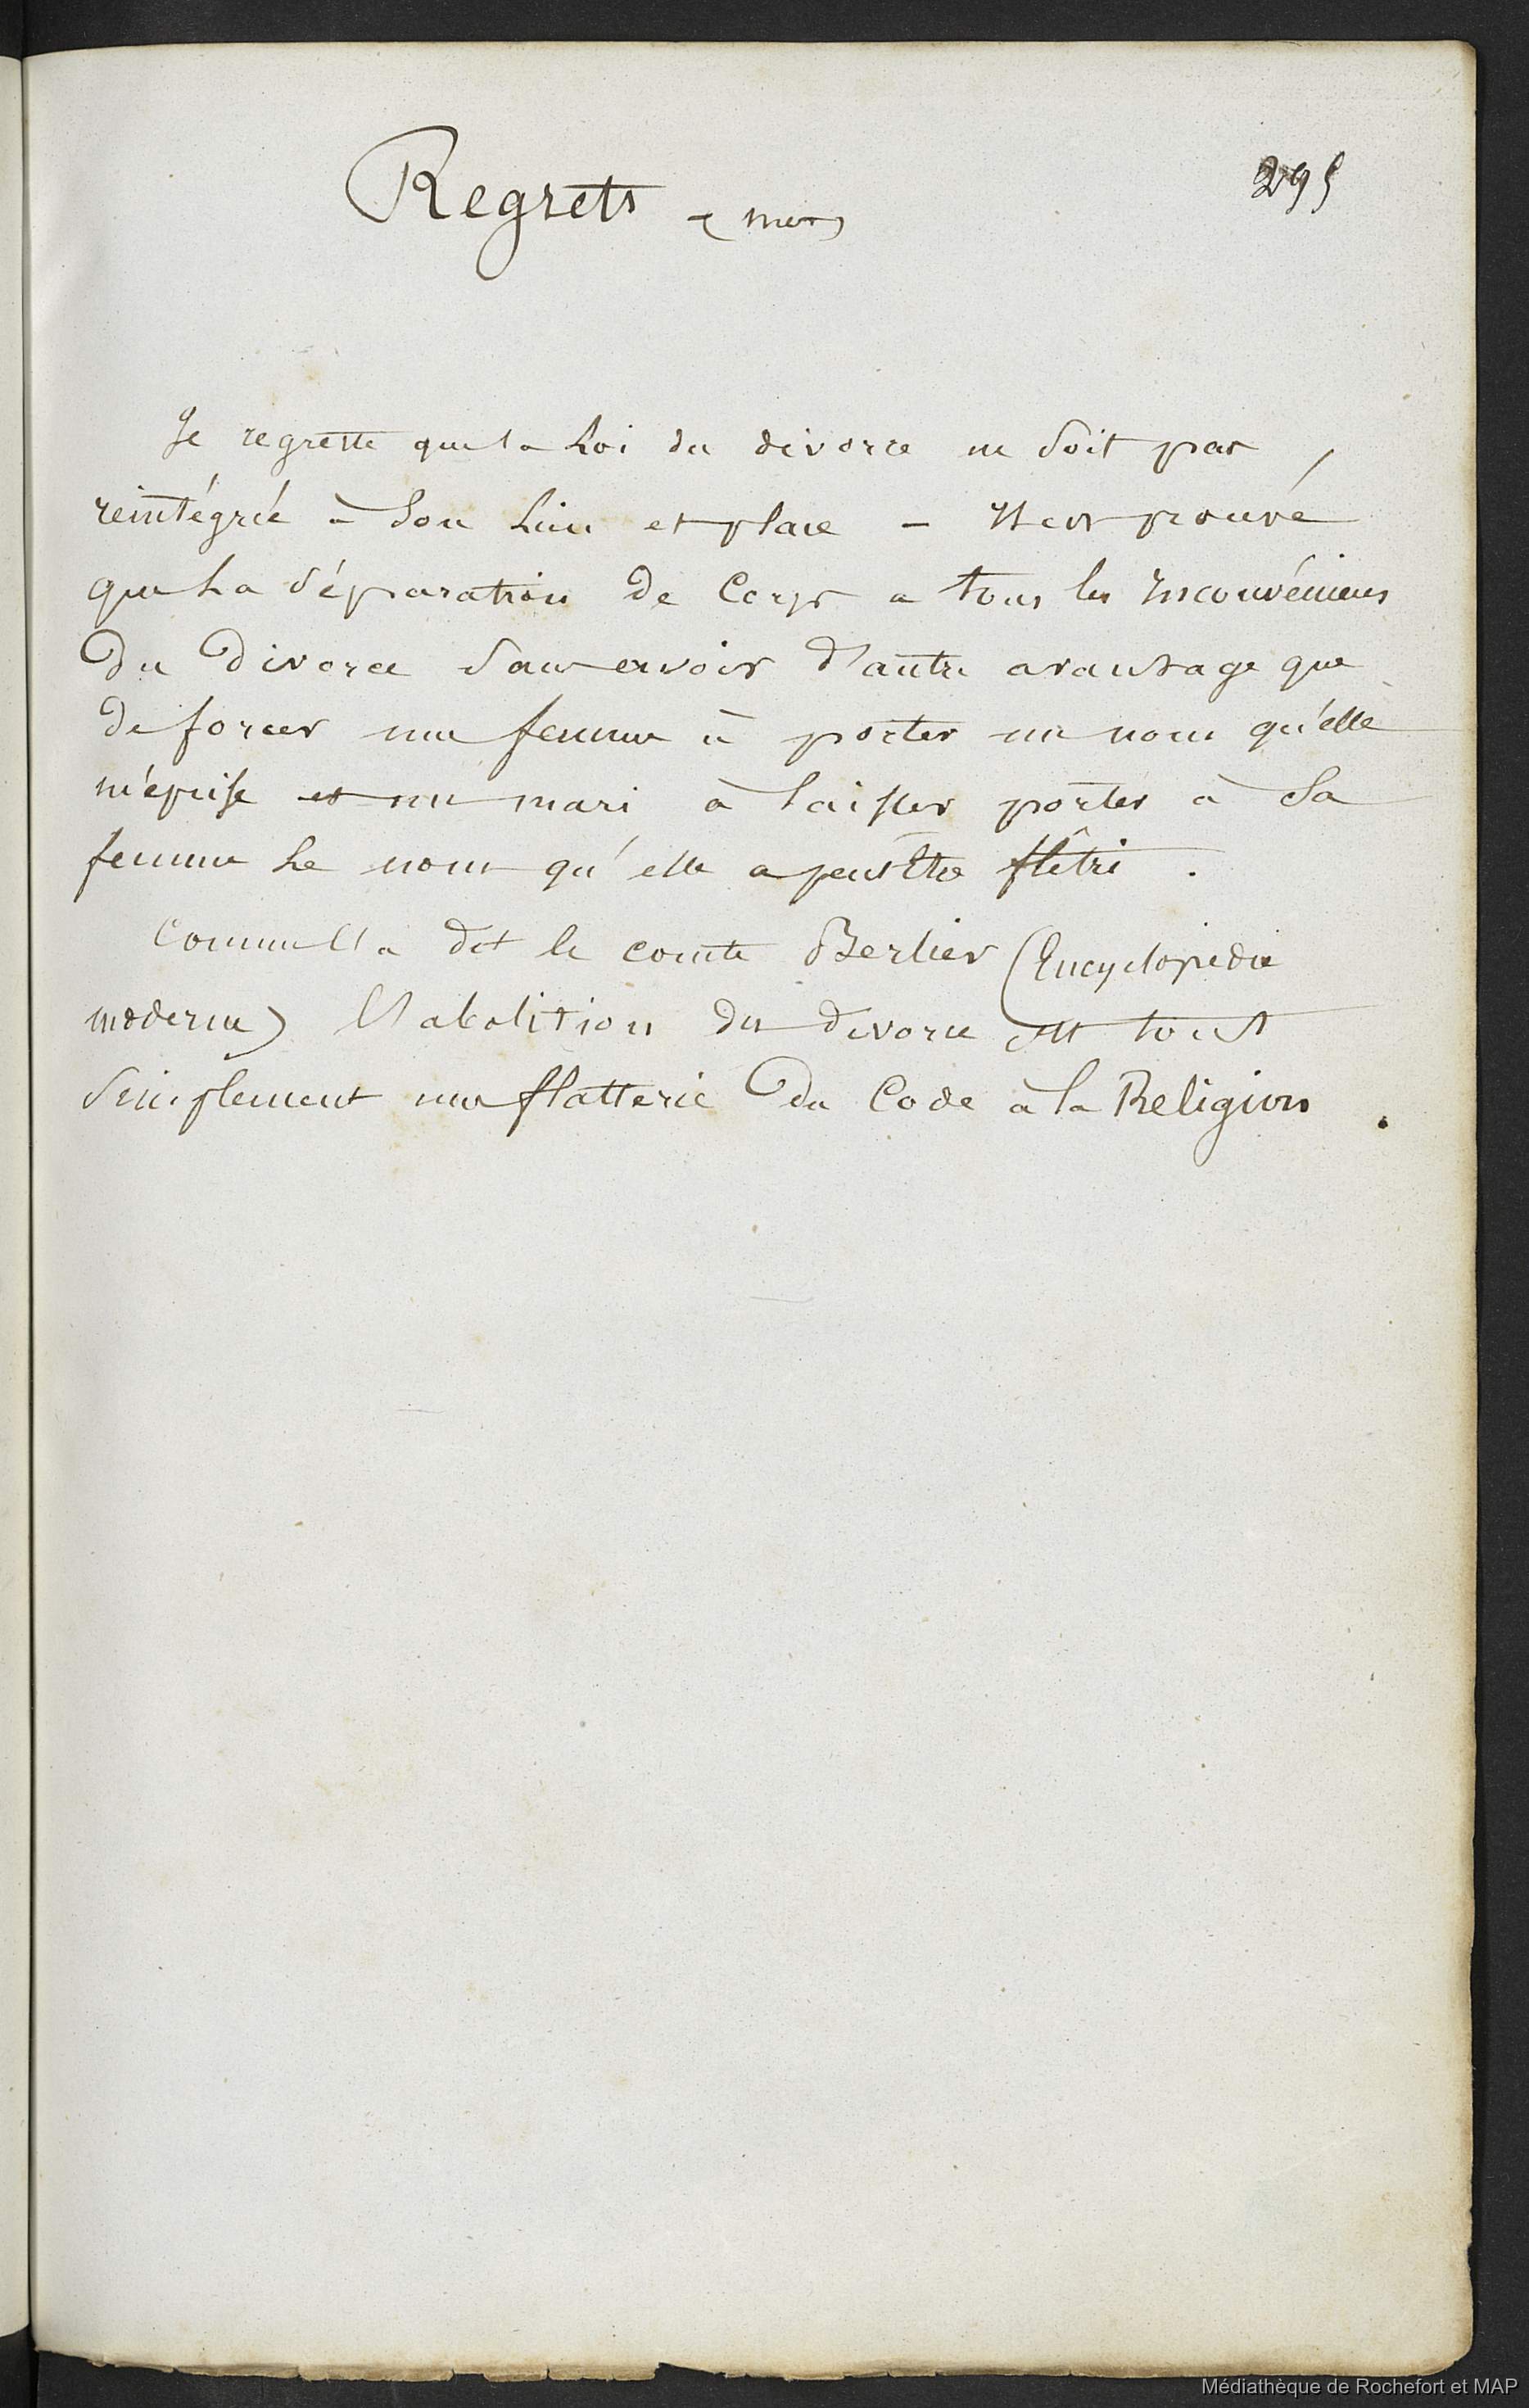 Regrets (mes)
295
Je regrette que la Loi du divorce ne soit pas
reintégrée à son lieu et place - Il est prouvé
que la séparation de Corps a tous les Inconvéniens
Du Divorce sans avoir d'autre avantage que
de forcer une femme à porter un nom qu'elle
méprise et un mari à laisser porter à sa
femme le nom qu'elle a peut être flêtri.
Comme l'a dit le comte Berlier (Encyclopédie
moderne) l'abolition du divorce est tout
simplement une flatterie Du Code à la Religion.
Médiathèque de Rochefort et MAP